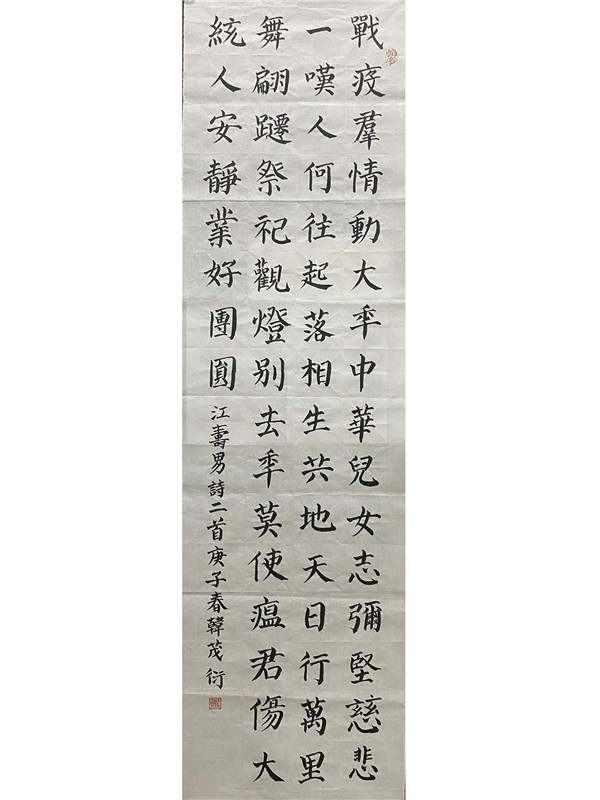 戰疫羣情動大秊中華兒女志彌堅慈悲
一嘆人何往起落相生共地天日行萬里
舞翩躚祭祀觀燈別去秊莫使瘟君傷大
統人安靜業好團圓
江壽男詩二首庚子春韓茂衍